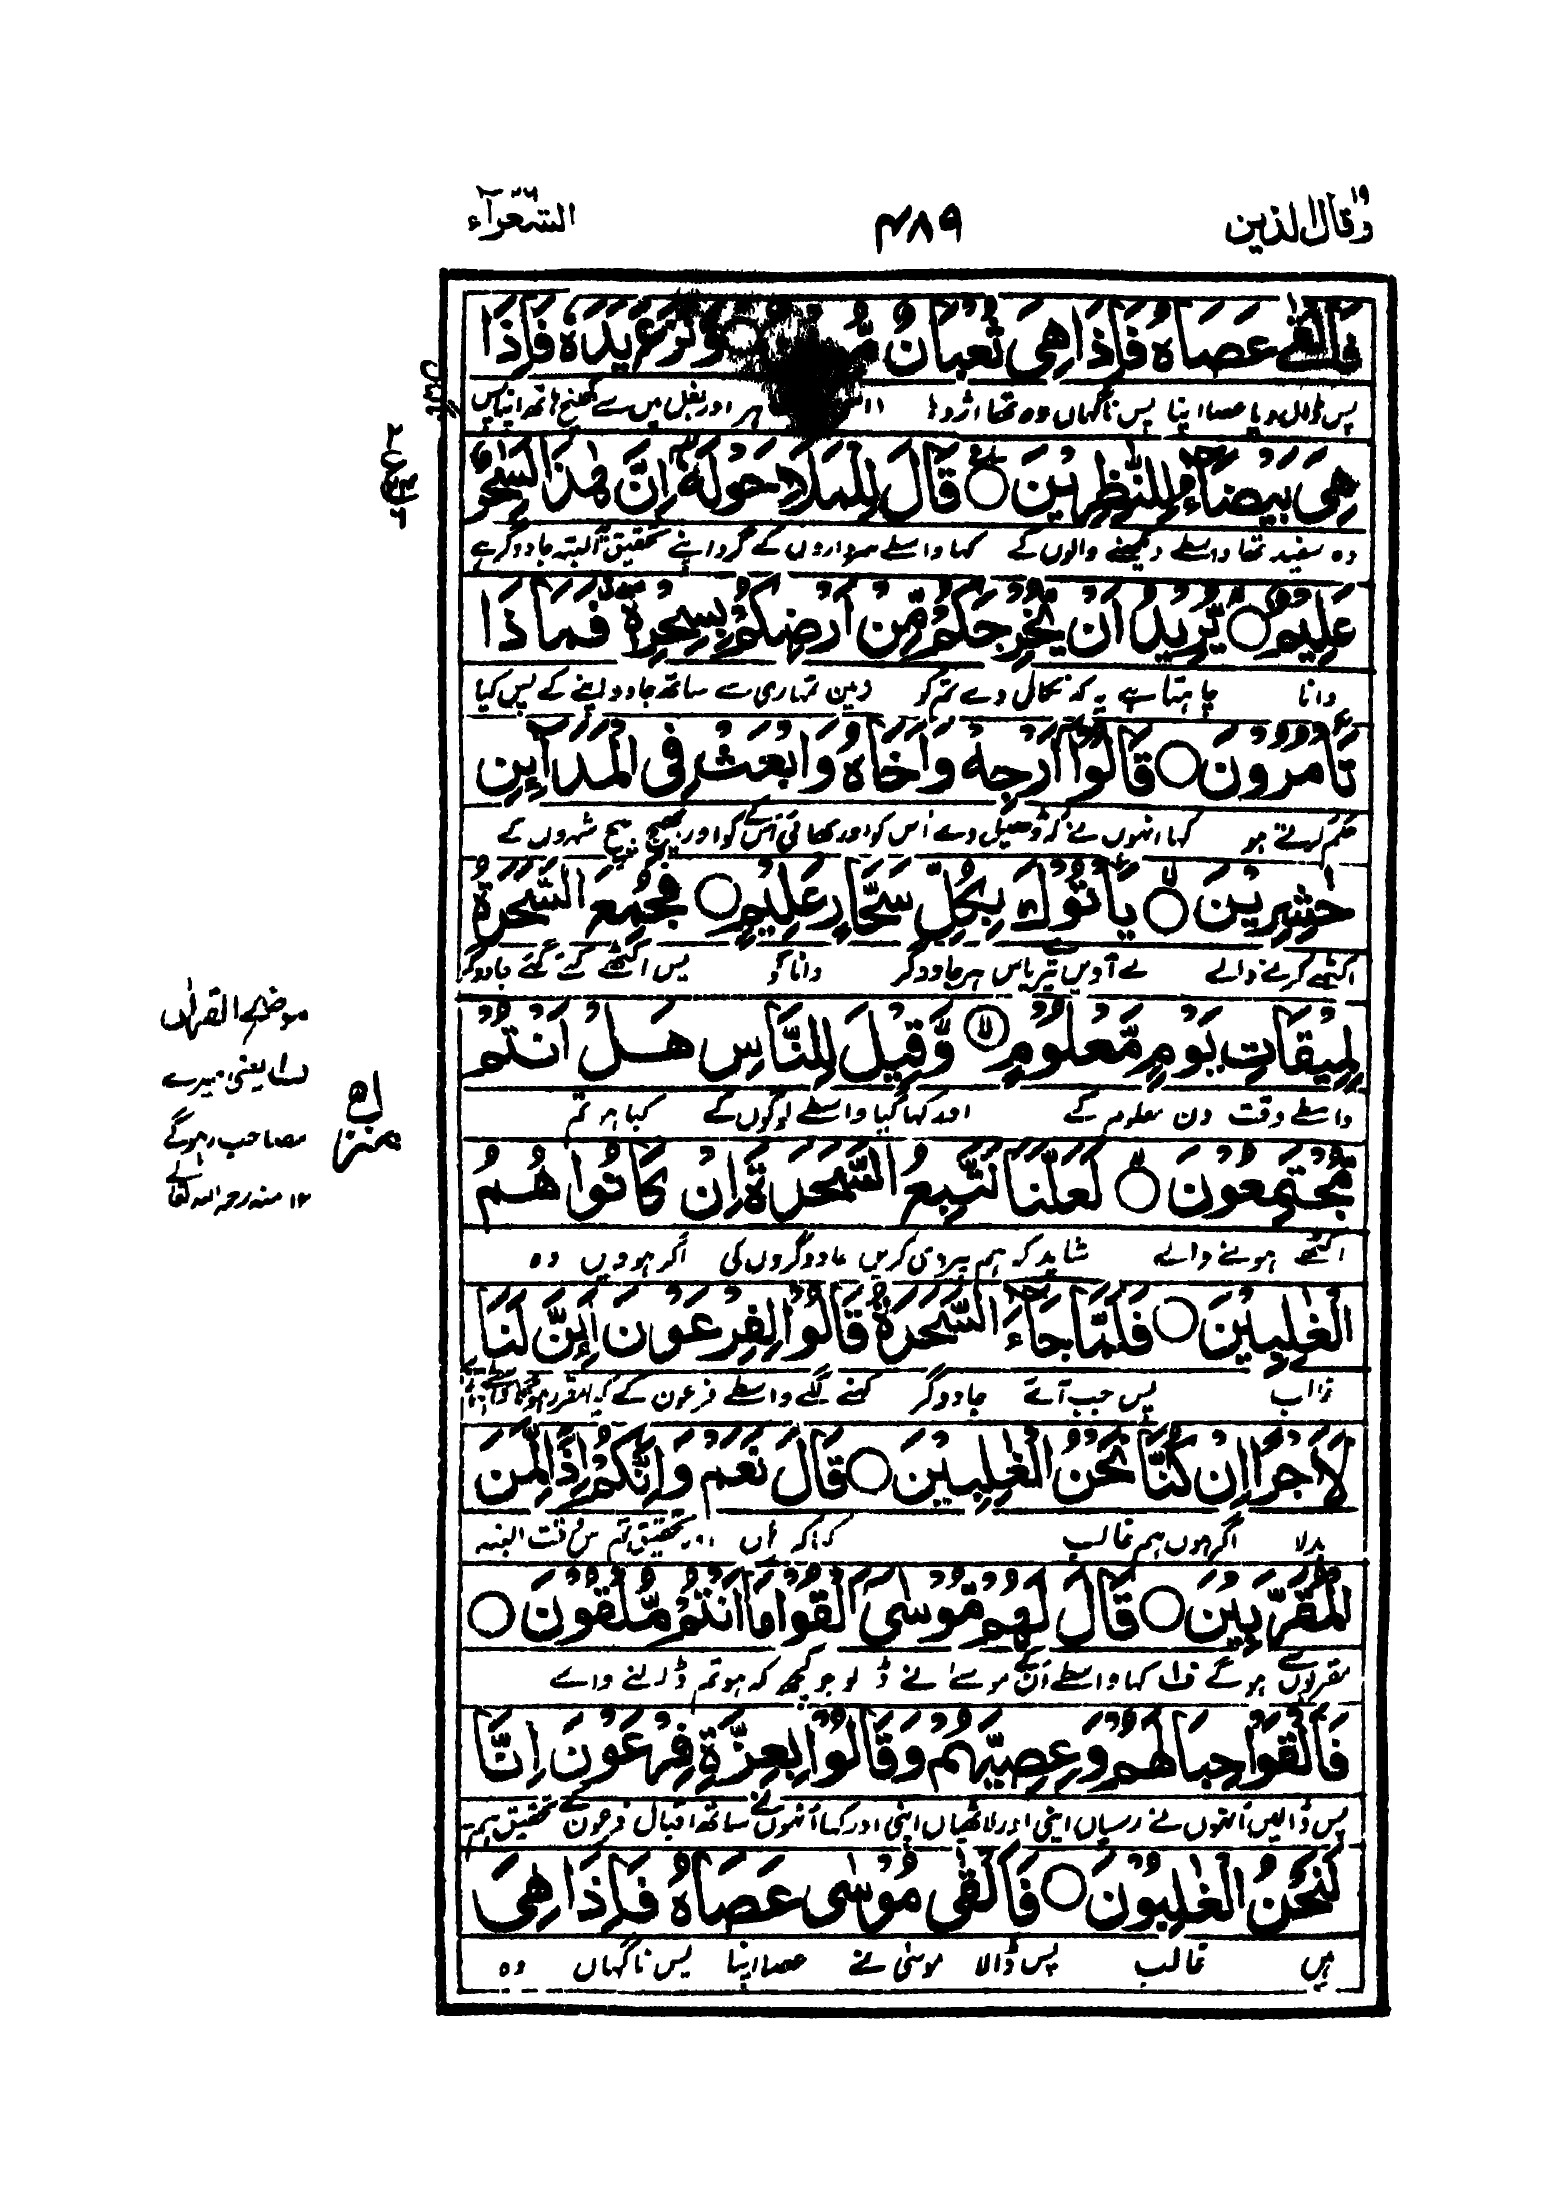 وقال الذین ۱۹
۴۸۹
الشعرآء ۲۶
فَاَلْقٰى عَصَاهُ فَاِذَا هِیَ ثُعْبَانٌ ○ وَّنَزَعَ یَدَهٗ فَاِذَا
پس ڈال دیا عصا اپنا پس ناگہاں وہ تھا اژدہا اور بغل میں سے کھینچ ہاتھ اپنا پس
هِیَ بَیْضَآءُ لِلنّٰظِرِیْنَ ○ قَالَ لِلْمَلَاِ حَوْلَهٗۤ اِنَّ هٰذَا لَسٰحِرٌ
وہ سفید تھا واسطے دیکھنے والوں کے کہا واسطے سرداروں کے گرد اپنے تحقیق یہ البتہ جادوگر ہے
عَلِیْمٌ ○ یُّرِیْدُ اَنْ یُّخْرِجَكُمْ مِّنْ اَرْضِكُمْ بِسِحْرِهٖ فَمَا ذَا
دانا چاہتا ہے یہ کہ نکال دے تم کو زمین تمہاری سے ساتھ جادو اپنے کے پس کیا
تَاْمُرُوْنَ ○ قَالُوْۤا اَرْجِهْ وَاَخَاهُ وَابْعَثْ فِی الْمَدَآىِٕنِ
حکم کرتے ہو کہا انہوں نے کہ ڈھیل دے اس کو اور بھائی اس کے کو اور بھیج بیچ شہروں کے
حٰشِرِیْنَ ○ یَاْتُوْكَ بِكُلِّ سَحَّارٍ عَلِیْمٍ ○ فَجُمِعَ السَّحَرَةُ
اکٹھے کرنے والے لے آویں تیرے پاس ہر جادوگر دانا کو پس اکٹھے کئے گئے جادوگر
لِمِیْقَاتِ یَوْمٍ مَّعْلُوْمٍ ○ وَّقِیْلَ لِلنَّاسِ هَلْ اَنْتُمْ
واسطے وقت دن معلوم کے اور کہا گیا واسطے لوگوں کے کیا ہو تم
مُّجْتَمِعُوْنَ ○ لَعَلَّنَا نَتَّبِعُ السَّحَرَةَ اِنْ كَانُوْا هُمُ
اکٹھے ہونے والے شاید کہ ہم پیروی کریں جادوگروں کی اگر ہوویں وہ
الْغٰلِبِیْنَ ○ فَلَمَّا جَآءَ السَّحَرَةُ قَالُوْا لِفِرْعَوْنَ اَىِٕنَّ لَنَا
غالب پس جب آئے جادوگر کہنے لگے واسطے فرعون کے کیا مقرر ہوگا واسطے ہمارے
لَاَجْرًا اِنْ كُنَّا نَحْنُ الْغٰلِبِیْنَ ○ قَالَ نَعَمْ وَاِنَّكُمْ اِذًا لَّمِنَ
بدلا اگر ہوں ہم غالب کہا کہ ہاں اور تحقیق تم اس وقت البتہ
الْمُقَرَّبِیْنَ ○ قَالَ لَهُمْ مُّوْسٰۤى اَلْقُوْا مَاۤ اَنْتُمْ مُّلْقُوْنَ ○
مقربوں سے ہوگے ف۱ کہا واسطے ان کے موسے نے ڈالو جو کچھ کہ ہو تم ڈالنے والے
فَاَلْقَوْا حِبَالَهُمْ وَعِصِیَّهُمْ وَقَالُوْا بِعِزَّةِ فِرْعَوْنَ اِنَّا
پس ڈالیں انہوں نے رسیاں اپنی اور لاٹھیاں اپنی اور کہا انہوں نے ساتھ اقبال فرعون کے تحقیق ہم
لَنَحْنُ الْغٰلِبُوْنَ ○ فَاَلْقٰى مُوْسٰى عَصَاهُ فَاِذَا هِیَ
ہیں غالب پس ڈالا موسٰی نے عصا اپنا پس ناگہاں وہ
۲
ع
۶
موضح القرآن
ف۱ یعنی میرے
مصاحب ہوگے
۱۲ منہ رحمہ اللہ تعالے
منزل ۵